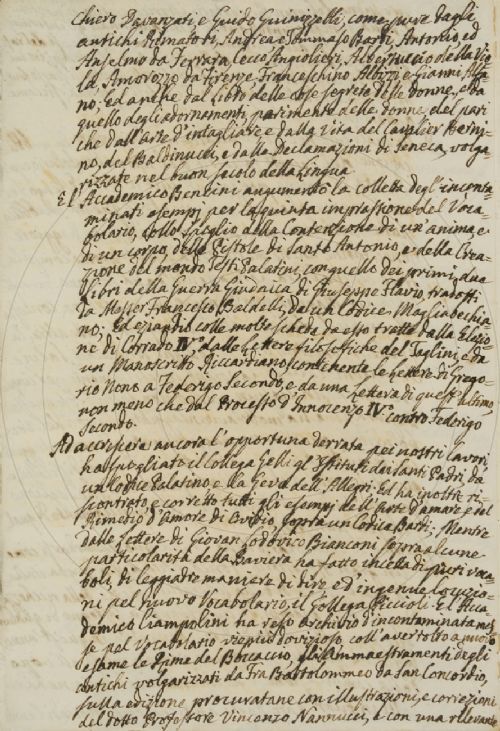 Chiaro Davanzati, e Guido Guinizzelli, come pure dagli
antichi Rimatori, Andrea e Tommaso Bardi, Antonio, ed
Anselmo da Ferrara, Cecco Angiolieri, Albertuccio della Vio-
la, Amorozzo da Firenze Franceschino Albizzi e Gianni Alfa-
no. Ed anche dal libro delle cose segrete delle donne, e da
quello degli adornamenti, parimente delle donne, del pari
che dall'arte d'intagliare e dalla Vita del Cavalier Berni-
no, del Baldinucci, e dalle Declamazioni di Seneca, volga-
rizzate nel buon secolo della Lingua.
E l'Accademico Bencini augumentò la colletta degl'inconta-
minati esempi per la quinta impressione del Voca-
bolario, collo spoglio della Contensione di un'anima e
di un corpo, delle Pistole di Santo Antonio, e della Crea-
zione del mondo Testi Palatini, con quello dei primi due
Libri della Guerra Giudaica di Giuseppe Flavio, tradotti
da Messer Francesco Baldelli, da un Codice Magliabechia-
no: Ed eziandio colle molte schede da esso tratte dalla Elezio-
ne di Corrado IV° dalle Lettere filosofiche del Taglini, e da
un Manoscritto Riccardiano contenente le Lettere di Grego-
rio Nono a Federigo Secondo, e da una Lettera di quest'ultimo
non meno che dal Processo d'Innocenzo IV° contro Federigo
Secondo.
Ad accrescere ancora l'opportuna derrata pei nostri lavori
ha spogliato il Collega Gelli gl'Istituti dei Santi Padri, da
un Codice Palatino e la Geva dell'Allegri. Ed ha inoltre ri-
scontrato, e corretto tutti gli esempj dell'Arte d'amare, e del
Rimedio d'Amore di Ovidio, sopra un Codice Bardi; Mentre
dalle Lettere di Giovan Lodovico Bianconi sopra alcune
particolarità della Baviera ha fatto incetta di puri voca-
boli, di leggiadre maniere di dire, ed'ingenue locuzio-
ni pel nuovo Vocabolario, il Collega Piccioli. E l'Acca-
demico Ciampolini ha reso archivio d'incontaminata mes-
se pel Vocabolario viepiù dovizioso, coll'aver tolto a nuovo
esame le Rime del Boccaccio, gli Ammaestramenti degli
antichi volgarizzati da Fra Bartolommeo da San Concordio,
sulla edizione procuratane con illustrazioni, e correzioni
del dotto Professore Vincenzo Nannucci, e con una rilevante